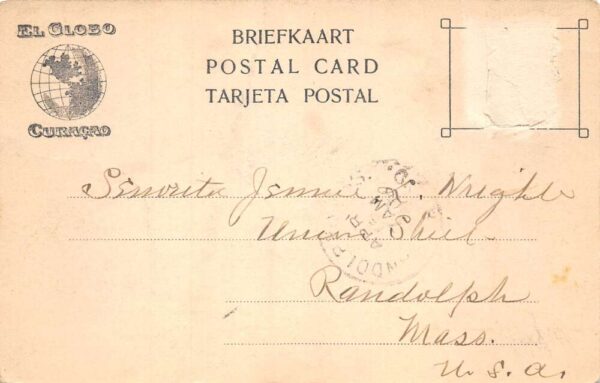 EL GLOBO
CURAÇAO
BRIEFKAART
POSTAL CARD
TARJETA POSTAL
Senorita Jennie Wright
Union
Randolph
Mass.
U. S. A.
APR
AM